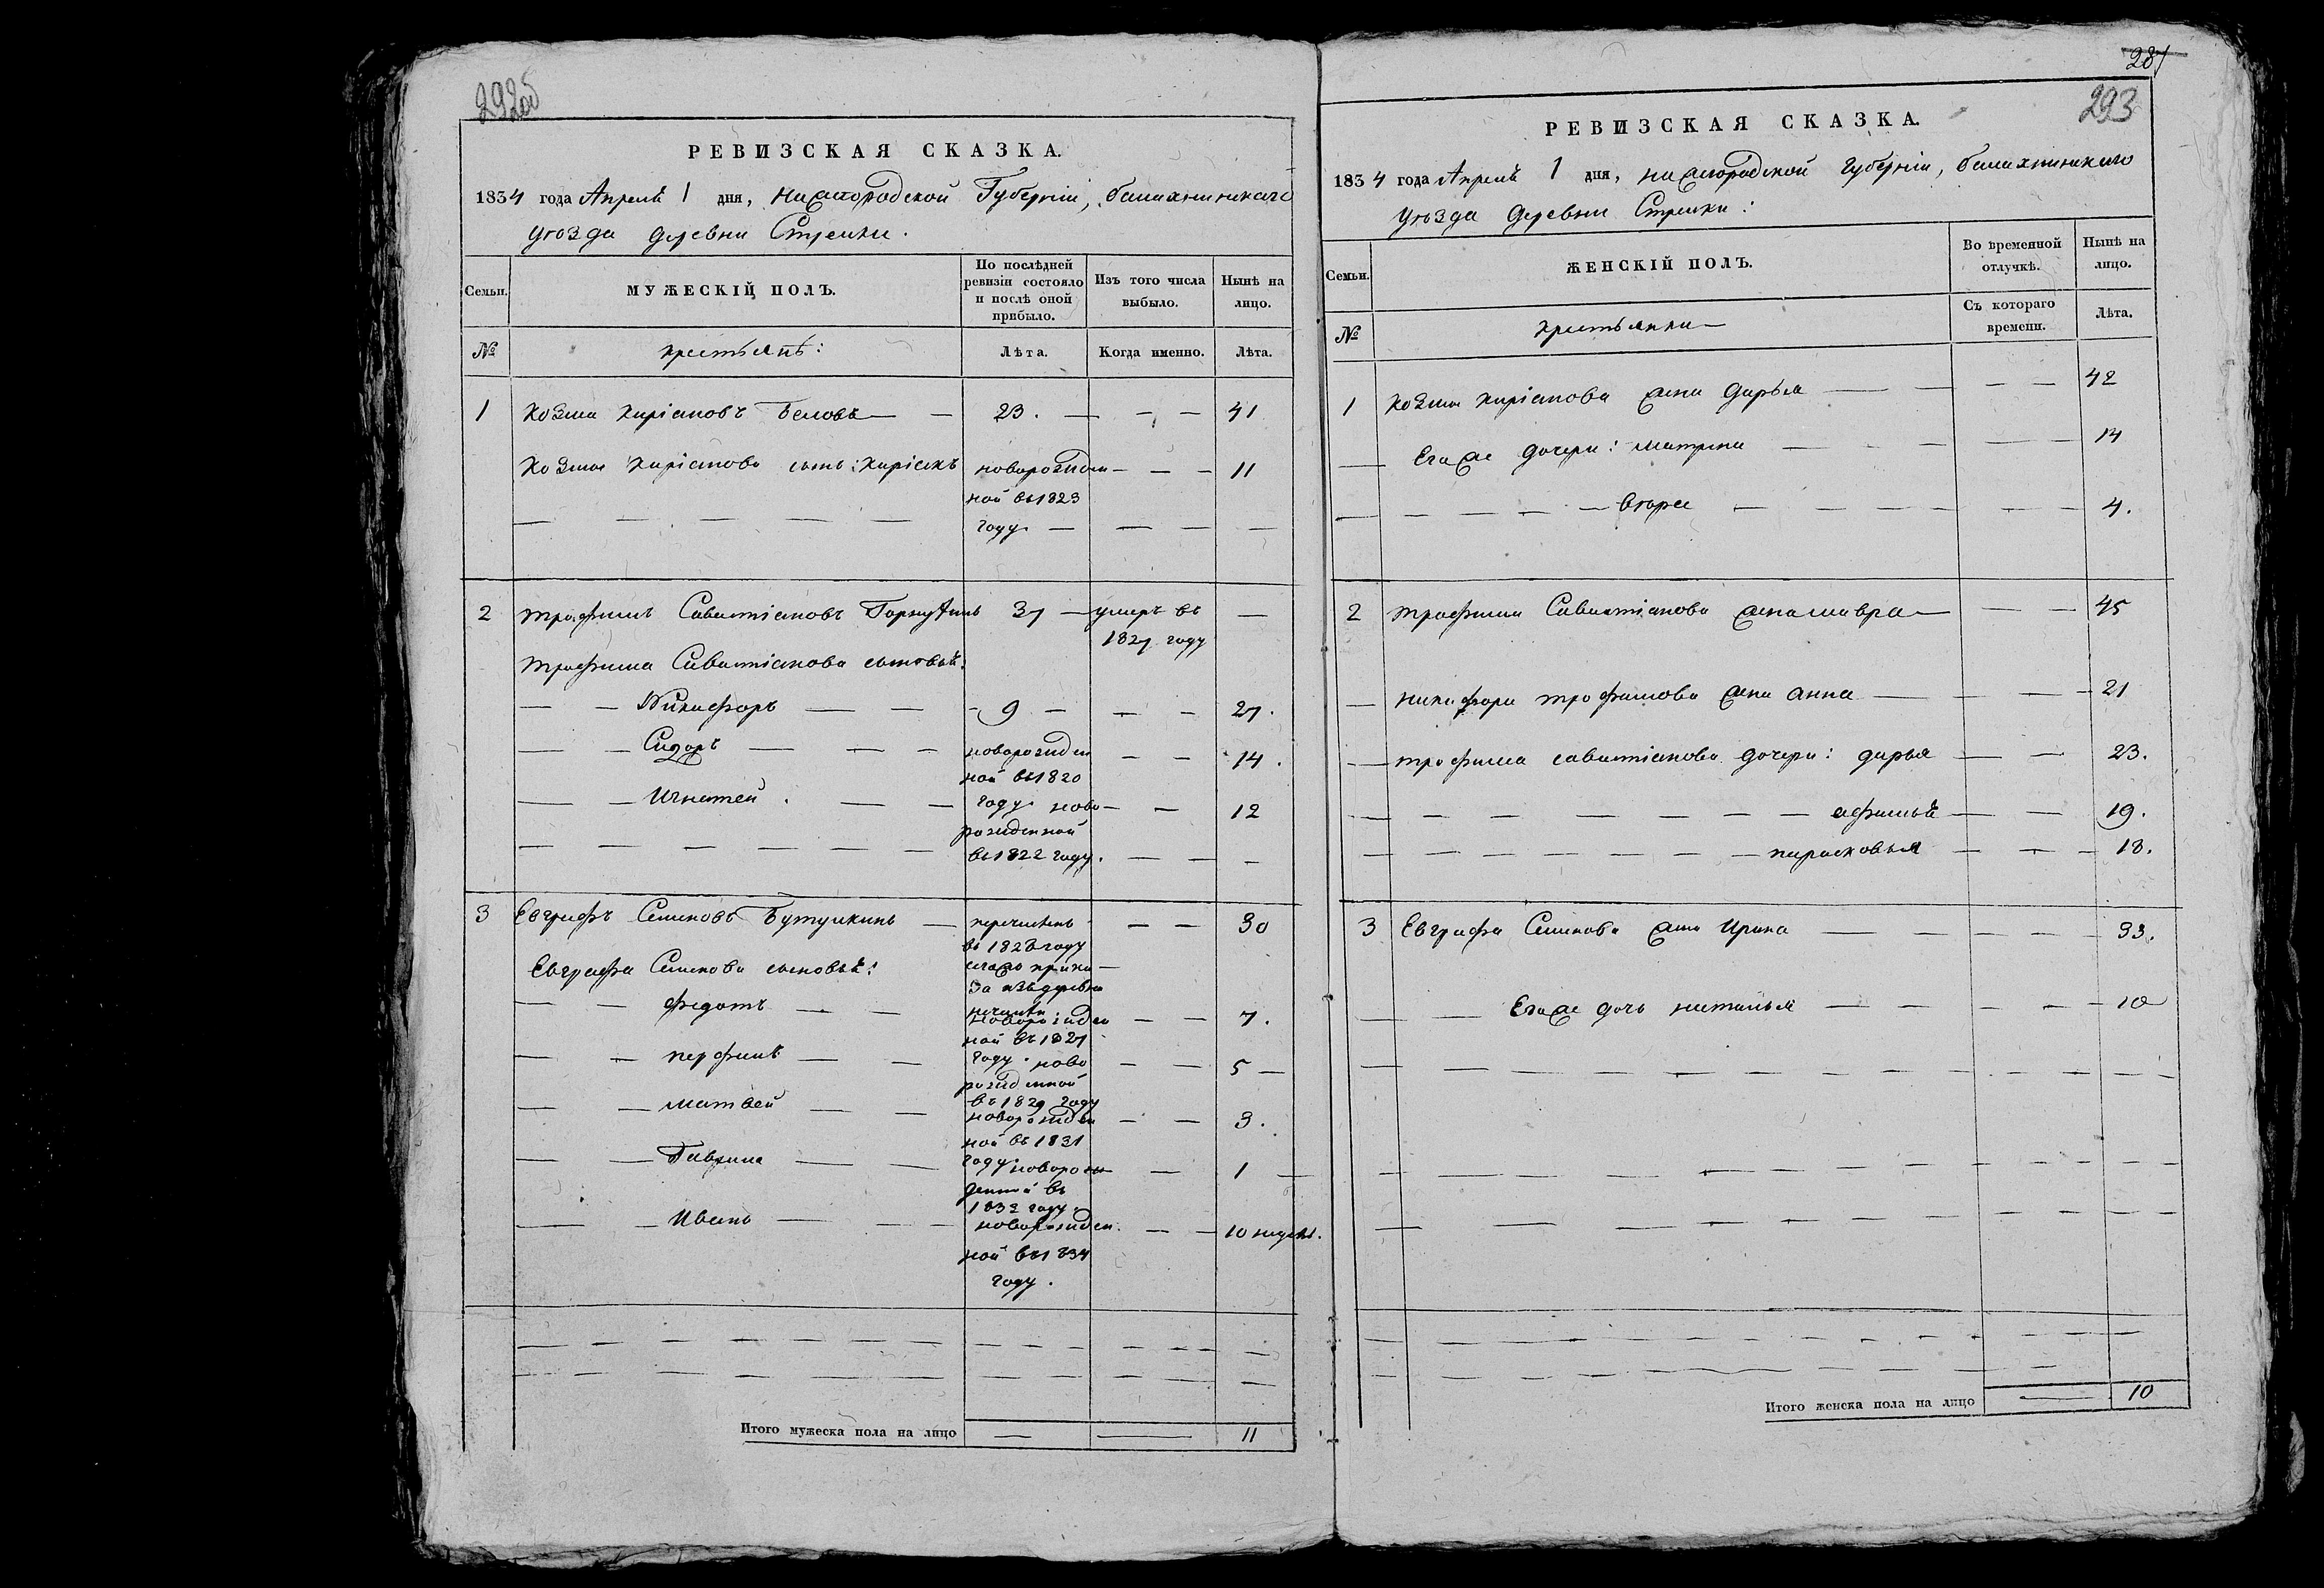 292об
РЕВИЗСКАЯ СКАЗКА.
1834 года Апреля 1 дня, нижегородской Губерніи, балахнинскаго
уѣзда деревни Стрелки.
Семьи.
МУЖЕСКІЙ ПОЛЪ.
По послѣдней ревизіи состояло и послѣ оной прибыло.
Изъ того числа выбыло.
Нынѣ на лицо.
№
крестьянъ:
Лѣта.
Когда именно.
Лѣта.
1 козма киріановъ беловъ 23. 41
козмы киріанова сынъ: киріакъ новорожден 11
ной въ 1823
году
2 трофимъ Савастіановъ 37 умеръ въ
1827 году
трофима Савастіанова сыновья:
Никифоръ 9 27.
Сидоръ новорожден 14.
ной въ 1820
Игнатей году ново 12
рожденной
въ 1822 году.
3 Евграфъ Семеновъ Бутушкинъ перечисленъ 30
въ 1828 году
Евграфа Семенова сыновья:
изъ деревни
федотъ новорожден 7.
ной въ 1827
перфилъ году. ново 5
рожденной
въ 1829 году
матвей новорожден 3.
ной въ 1831
Гаврила году новорож 1
денной въ
1832 году.
Иванъ новорожден 10 недель.
ной въ 1834
году.
Итого мужеска пола на лицо 11
287
293
РЕВИЗСКАЯ СКАЗКА.
1834 года Апреля 1 дня, нижегородской губерніи, балахнинскаго
уѣзда деревни Стрелки:
Семьи.
ЖЕНСКІЙ ПОЛЪ.
Во временной отлучкѣ.
Нынѣ на лицо.
№
крестьянки
Съ котораго времени.
Лѣта.
1 козмы киріанова жена дарья 42
Егоже дочери: матрена 14
4.
2 трофима Савастіанова жена мавра 45
никифора трофимова жена анна 21
трофима савастіанова дочери: дарья 23.
афимья 19.
парасковья 18.
3 Евграфа Семенова жена Ирина 33.
Егоже дочь наталья 10
Итого женска пола на лицо 10